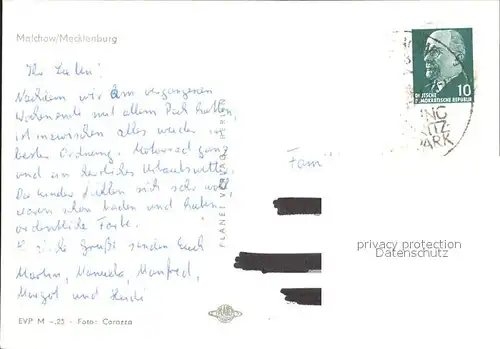 Malchow/Mecklenburg
Ihr Lieben!
Nachdem wir am vergangenen
Wochenende mit allem Pech hatten,
ist inzwischen alles wieder in
bester Ordnung. Motorrad ganz
und ein herrliches Urlaubswetter.
Die Kinder fühlen sich sehr wohl,
waren schon baden und haben
ordentliche Farbe.
Grüße senden Euch
Martin, Manuela, Manfred,
Margot und Heidi
EVP M -.25 · Foto: Corazza
PLANET VERLAG BERLIN
PLANET
Fam
10
DEUTSCHE
DEMOKRATISCHE REPUBLIK
PARK
privacy protection
Datenschutz